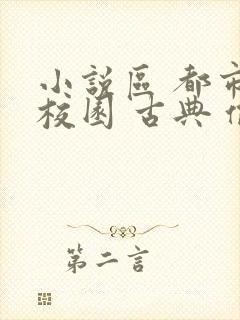 小說區 都市
校園 古典
第二言